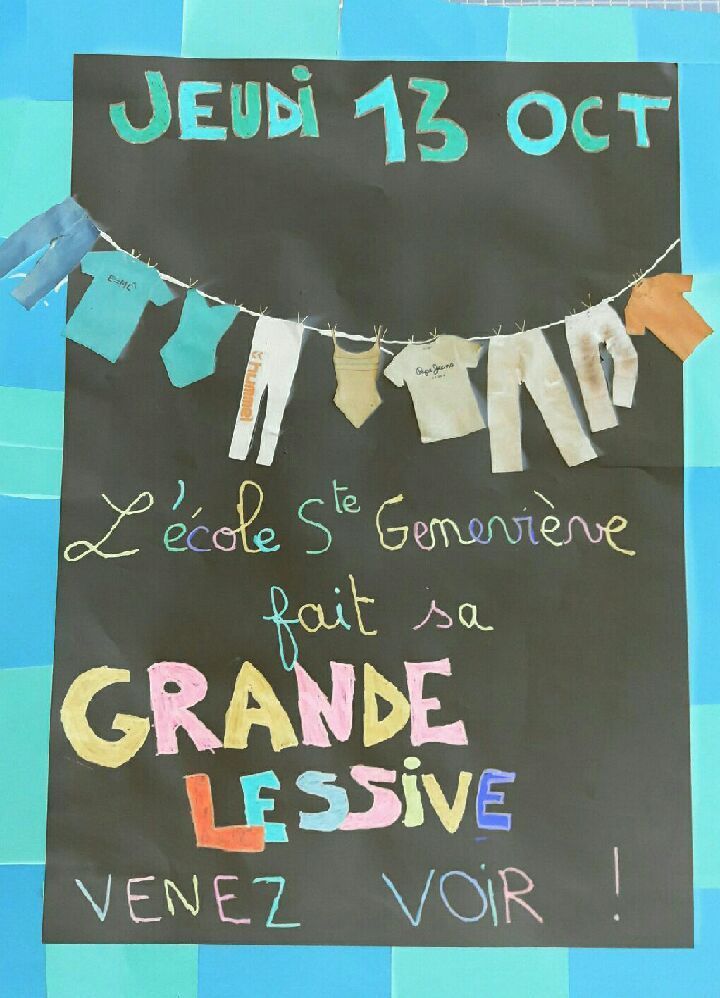 JEUDI 13 OCT
E=MC²
hummel
Pepe Jeans
L'école Ste Geneviève
fait sa
GRANDE
LESSIVE
VENEZ VOIR !